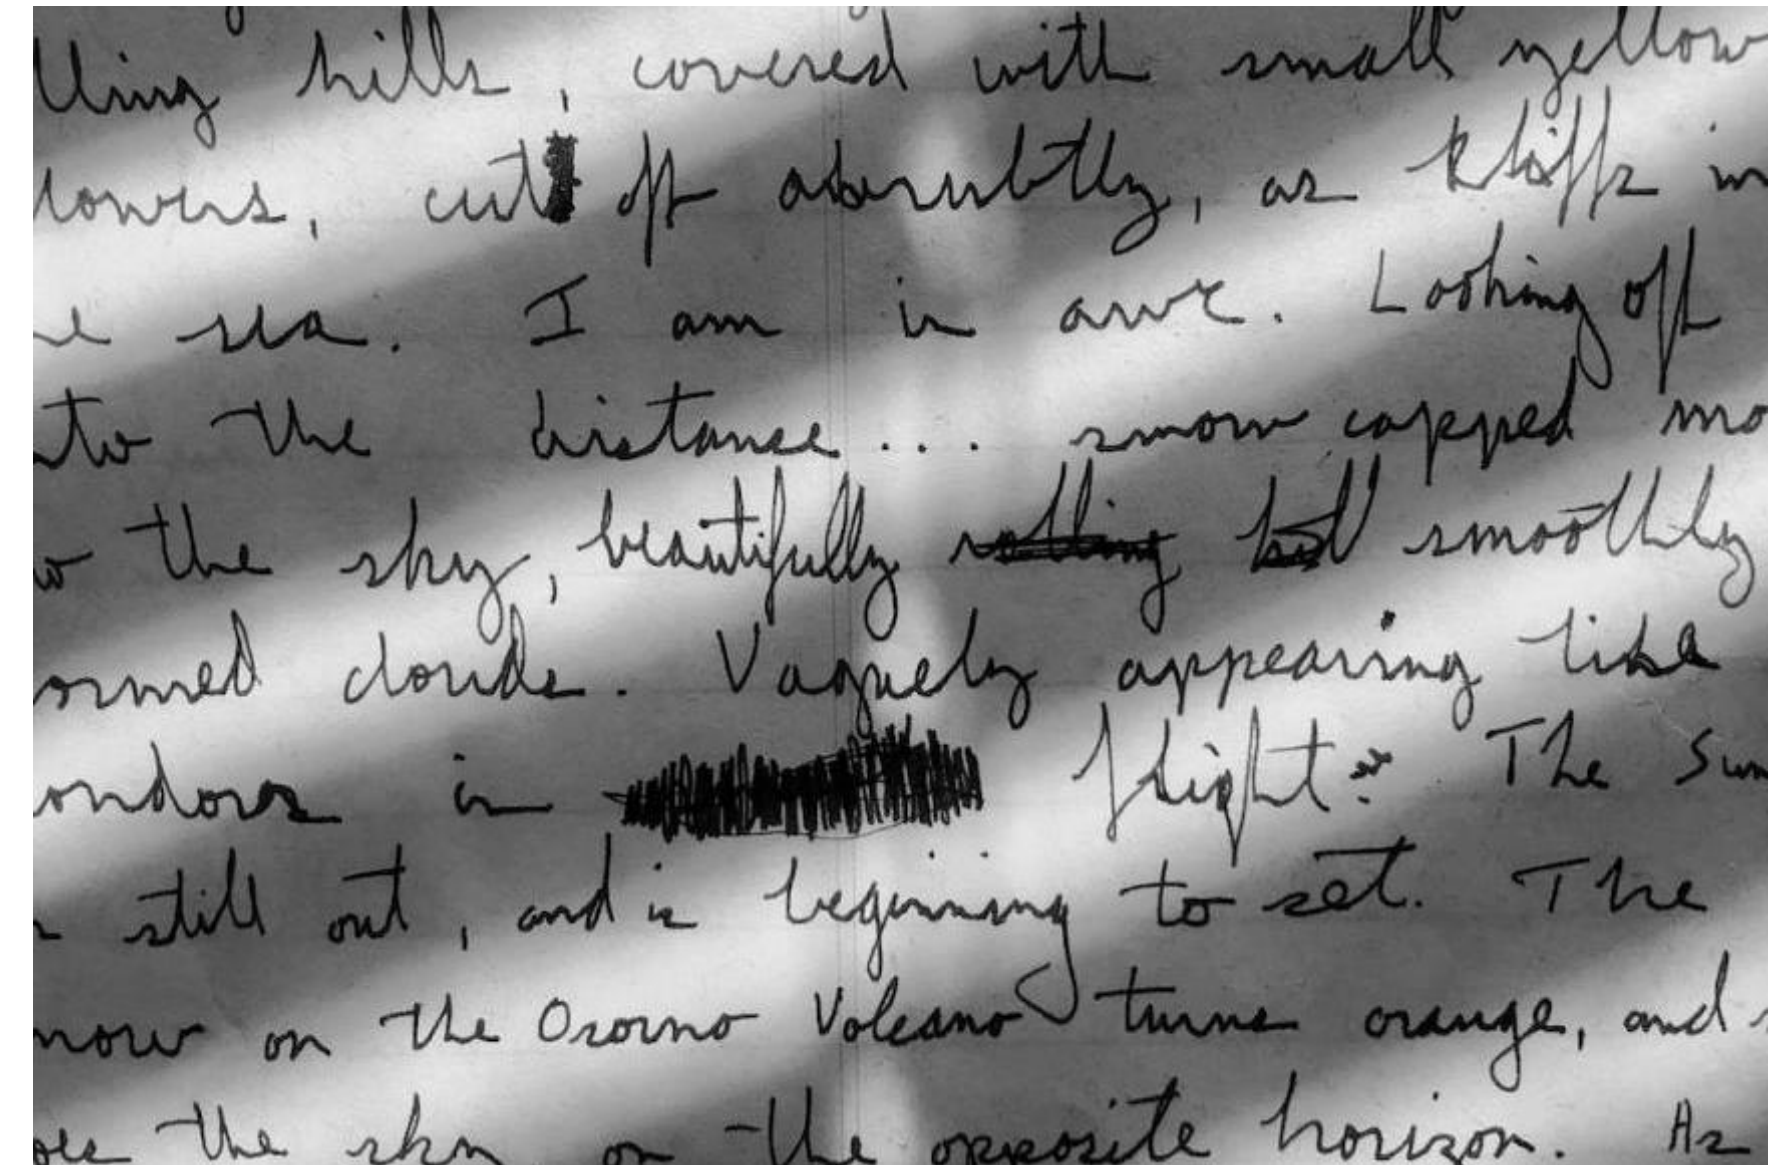 lling hills, covered with small yellow
lowers, cut off abrubtly, as kliffs in
e sea. I am in awe. Looking off
nto the distance... snow capped mo
o the sky, beautifully rolling but smoothly
ormed clouds. Vaguely appearing like
ondors in flight. The Sun
still out, and is beginning to set. The
now on the Osorno Volcano turns orange, and
oes the sky on the opposite horizon. As